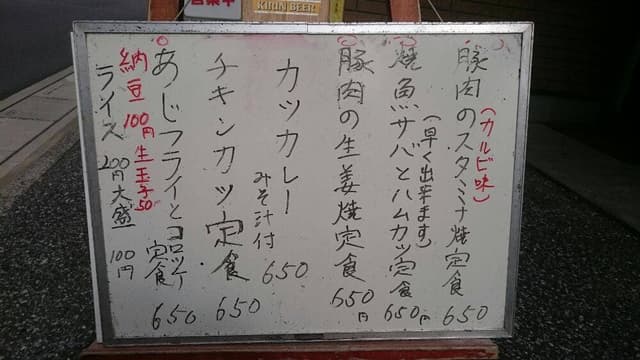 営業中
KIRIN BEER
豚肉のスタミナ焼定食 650
(カルビ味)
焼魚サバとハムカツ定食 650円
(早く出来ます)
豚肉の生姜焼定食 650円
カツカレー 650
みそ汁付
チキンカツ定食 650
あじフライとコロッケ定食 650
納豆100円 生玉子50
ライス 200円 大盛100円